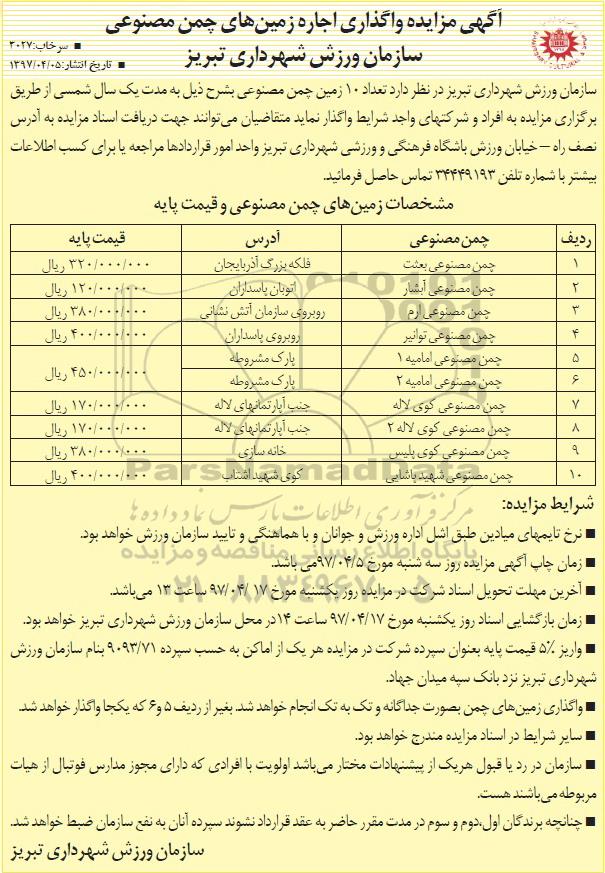 آگهی مزایده واگذاری اجاره زمین‌های چمن مصنوعی
سازمان ورزش شهرداری تبریز
■ سرخاب: ۳۰۲۷
■ تاریخ انتشار: ۱۳۹۷/۰۴/۰۵
سازمان ورزش شهرداری تبریز در نظر دارد تعداد ۱۰ زمین چمن مصنوعی بشرح ذیل به مدت یک سال شمسی از طریق
برگزاری مزایده به افراد و شرکتهای واجد شرایط واگذار نماید متقاضیان می‌توانند جهت دریافت اسناد مزایده به آدرس
نصف راه – خیابان ورزش باشگاه فرهنگی و ورزشی شهرداری تبریز واحد امور قراردادها مراجعه یا برای کسب اطلاعات
بیشتر با شماره تلفن ۳۴۴۴۹۱۹۳ تماس حاصل فرمائید.
مشخصات زمین‌های چمن مصنوعی و قیمت پایه
ردیف چمن مصنوعی آدرس قیمت پایه
۱ چمن مصنوعی بعثت فلکه بزرگ آذربایجان ۳۲۰/۰۰۰/۰۰۰ ریال
۲ چمن مصنوعی آبشار اتوبان پاسداران ۱۲۰/۰۰۰/۰۰۰ ریال
۳ چمن مصنوعی ارم روبروی سازمان آتش نشانی ۳۸۰/۰۰۰/۰۰۰ ریال
۴ چمن مصنوعی توانیر روبروی پاسداران ۴۰۰/۰۰۰/۰۰۰ ریال
۵ چمن مصنوعی امامیه ۱ پارک مشروطه ۴۵۰/۰۰۰/۰۰۰ ریال
۶ چمن مصنوعی امامیه ۲ پارک مشروطه
۷ چمن مصنوعی کوی لاله جنب آپارتمانهای لاله ۱۷۰/۰۰۰/۰۰۰ ریال
۸ چمن مصنوعی کوی لاله ۲ جنب آپارتمانهای لاله ۱۷۰/۰۰۰/۰۰۰ ریال
۹ چمن مصنوعی کوی پلیس خانه سازی ۳۸۰/۰۰۰/۰۰۰ ریال
۱۰ چمن مصنوعی شهید پاشایی کوی شهید اشتاب ۴۰۰/۰۰۰/۰۰۰ ریال
شرایط مزایده:
■ نرخ تایمهای میادین طبق اشل اداره ورزش و جوانان و با هماهنگی و تایید سازمان ورزش خواهد بود.
■ زمان چاپ آگهی مزایده روز سه شنبه مورخ ۹۷/۰۴/۵می باشد.
■ آخرین مهلت تحویل اسناد شرکت در مزایده روز یکشنبه مورخ ۱۷ /۹۷/۰۴ ساعت ۱۳ می‌باشد.
■ زمان بازگشایی اسناد روز یکشنبه مورخ ۹۷/۰۴/۱۷ ساعت ۱۴در محل سازمان ورزش شهرداری تبریز خواهد بود.
■ واریز ۵% قیمت پایه بعنوان سپرده شرکت در مزایده هر یک از اماکن به حسب سپرده ۹۰۹۳/۷۱ بنام سازمان ورزش
شهرداری تبریز نزد بانک سپه میدان جهاد.
■ واگذاری زمین‌های چمن بصورت جداگانه و تک به تک انجام خواهد شد. بغیر از ردیف ۵ و ۶ که یکجا واگذار خواهد شد.
■ سایر شرایط در اسناد مزایده مندرج خواهد بود.
■ سازمان در رد یا قبول هریک از پیشنهادات مختار می‌باشد اولویت با افرادی که دارای مجوز مدارس فوتبال از هیات
مربوطه می‌باشند هست.
■ چنانچه برندگان اول،دوم و سوم در مدت مقرر حاضر به عقد قرارداد نشوند سپرده آنان به نفع سازمان ضبط خواهد شد.
سازمان ورزش شهرداری تبریز
ParsNamadData
مرکز فرآوری اطلاعات پارس نماد داده ها
پایگاه اطلاع رسانی مناقصه و مزایده
۰۲۱-۸۸۳۴۹۶۷۰-۵